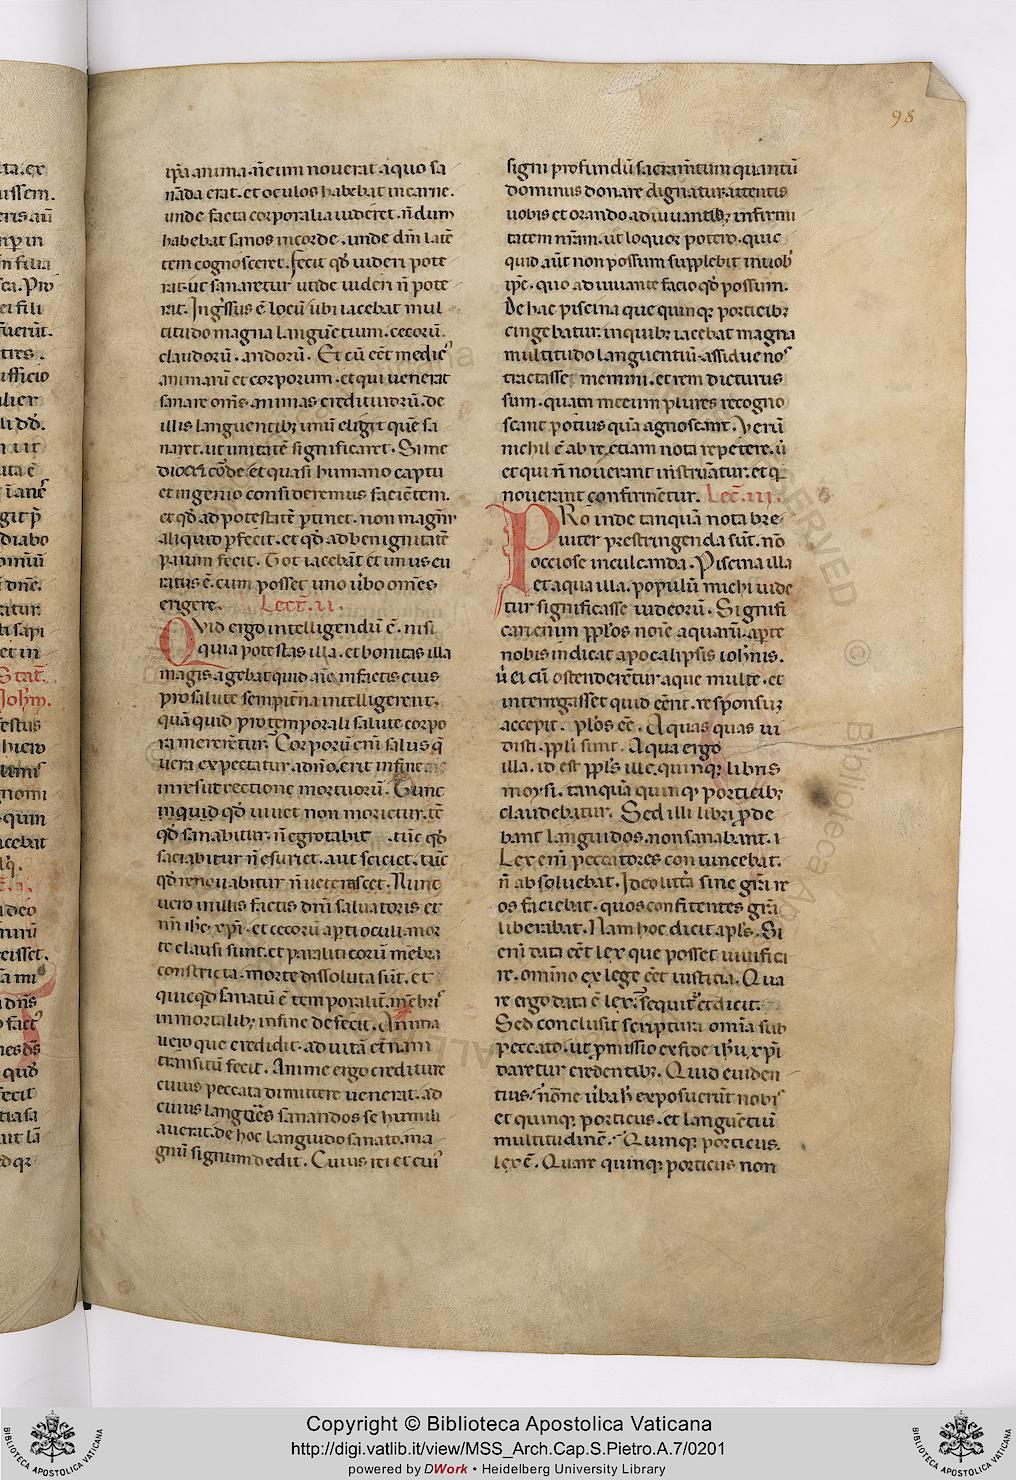 98
ip̄a anima. n̄ enim noverat a quo sa
nāda erat. et oculos habebat in carne.
unde facta corporalia videret. n̄ dum
habebat sanos in corde. unde dn̄m latē
tem cognosceret. fecit qđ videri pote
rat. ut sanaretur unde videri n̄ pote
rat. Ingr̄ssus ē locū ubi iacebat mul
titudo magna languētium. cecorū.
claudorū. aridorū. Et cū eēt medic᷒
animarū et corporum. et qui venerat
sanare om̄s animas crediturorū. de
illis languentib; unū eligit quē sa
naret. ut unitatē significaret. Si me
diocri corde et quasi humano captu
et ingenio consideremus facientem.
et qđ ad potestatē ptinet. non magnū
aliquid pfecit. et qđ ad benignitatē
parum fecit. Tot iacebāt et unus cu
ratus ē. cum posset uno v̄bo omnes
erigere. Lect̄. ii.
Quid ergo intelligendū ē. nisi
quia potestas illa. et bonitas illa
magis agebat quid aīe in factis eius
pro salute sempit̄na intelligerent.
quā quid pro temporali salute corpo
ra mererētur. Corporū eni salus q̄
vera expectatur a dn̄o. erit in fine
in resurrectione mortuorū. Tunc
inquid qđ vivet non morietur. tc̄
qđ sanabitur. n̄ egrotabit. tūc qđ
saciabitur n̄ esuriet. aut sciciet. tūc
qđ renovabitur n̄ veterascet. Nunc
vero in illis factis dn̄i salvatoris et
nr̄i ih̄c xp̄i. et cecorū apti oculi. mor
te clausi sunt. et paraliticorū mēbra
constricta. morte dissoluta sūt. et
quicqđ sanatū ē temporalit̄. in mēbris
in mortalib; in fine defecit. Anima
vero que credidit. ad vitā et̄nam
transitū fecit. Anime ergo crediture
cuius peccata dimittere venerat. ad
cuius languores sanandos se humili
averat. de hoc languido sanato. ma
gnū signum dedit. Cuius rei et cui᷒
signi profundū sacram̄tum quantū
dominus donare dignatur. attentis
vobis et orando adiuvantib; infirmi
tatem nr̄am. ut loquor potero. quic
quid aūt non possum supplebit in vob᷒
ip̄e. quo adiuvante facio qđ possum.
De hac piscina que quinq; porticib;
cingebatur. in quib; iacebat magna
multitudo languentiū. assidue nos
tractasse memini. et rem dicturus
sum. quam mecum plures recogno
scant potius quā agnoscant. Verū
nichil ē ab re. etiam nota repetere. ut
et qui n̄ noverant instruātur. et q̄
noverunt confirmētur. Lect̄. iii.
PRō inde tanquā nota bre
viter prestringenda sūt. nō
occiose inculcanda. Piscina illa
et aqua illa. populūm michi vide
tur significasse iudeorū. Signifi
cari enim pplos noīe aquarū. apte
nobis indicat apocalipsis ioh̄nis.
ū ei cū ostenderētur aque multe. et
interrogasset quid eent. responsū;
accepit. plōs eē. Aquas quas vi
disti. ppli sunt. Aqua ergo
illa. id est ppl̄s ille. quinq; libris
moysi. tanquā quinq; porticib;
claudebatur. Sed illi libri pde
bant languidos. non sanabant.
Lex enī peccatores convincebat.
n̄ absolvebat. Ideo litt̄a sine gr̄a re
os faciebat. quos confitentes gr̄a
liberabat. Nam hoc dicit apl̄s. Si
enī data eēt lex que posset vivifica
re. omnino ex lege eēt iustitia. Qua
re ergo data ē lex. Sequit᷒ et dicit.
Sed conclusit scriptura omīa sub
peccato. ut pmissio ex fide ih̄u xp̄i
daretur credentib;. Quid eviden
tius. nōne v̄ba h̄ exposuerūt nobis
et quinq; porticus. et languētiū
multitudinē. Quinq; porticus.
lex ē. Quare quinq; porticus non
Copyright © Biblioteca Apostolica Vaticana
http://digi.vatlib.it/view/MSS_Arch.Cap.S.Pietro.A.7/0201
powered by DWork • Heidelberg University Library
BIBLIOTECA APOSTOLICA VATICANA
BIBLIOTECA APOSTOLICA VATICANA